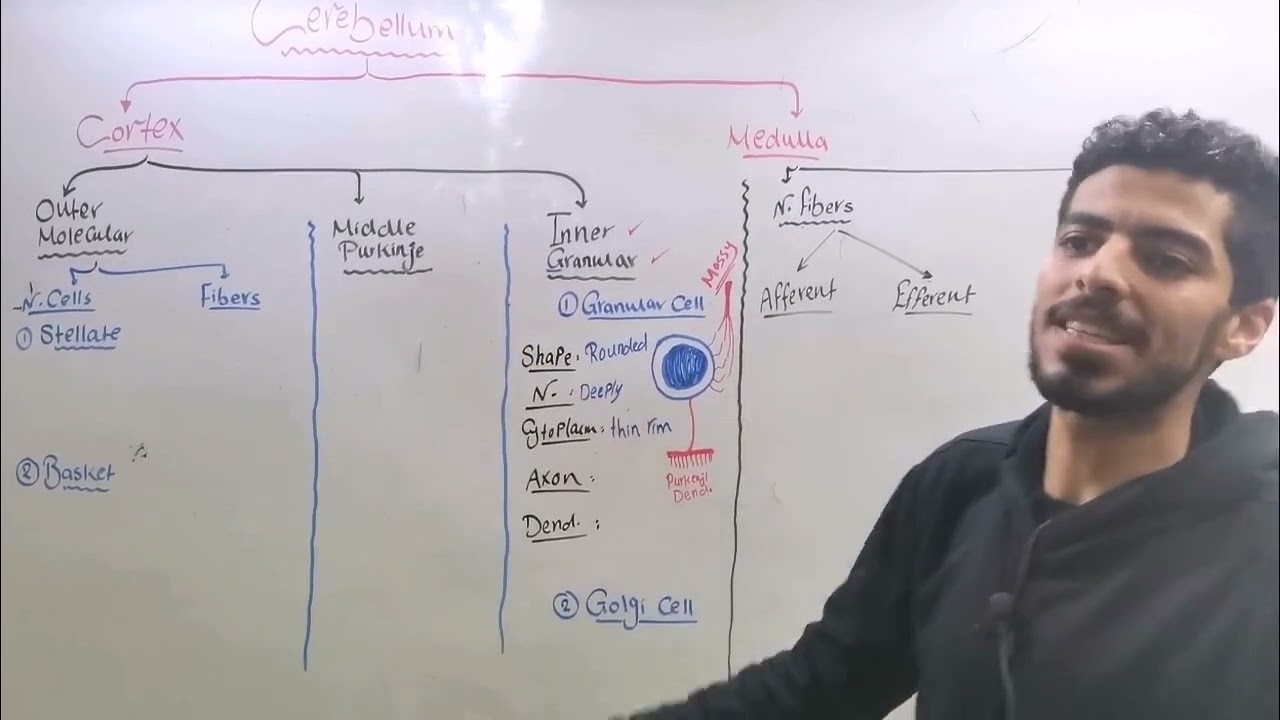 Cerebellum
Cortex
Medulla
Outer
Molecular
N. Cells
Fibers
① Stellate
② Basket
Middle
Purkinje
Inner ✓
Granular ✓
① Granular Cell
Mossy
Shape: Rounded
N. : Deeply
Cytoplasm: thin rim
Axon :
Dend. :
Purkenji
Dend.
② Golgi Cell
N. fibers
Afferent
Efferent